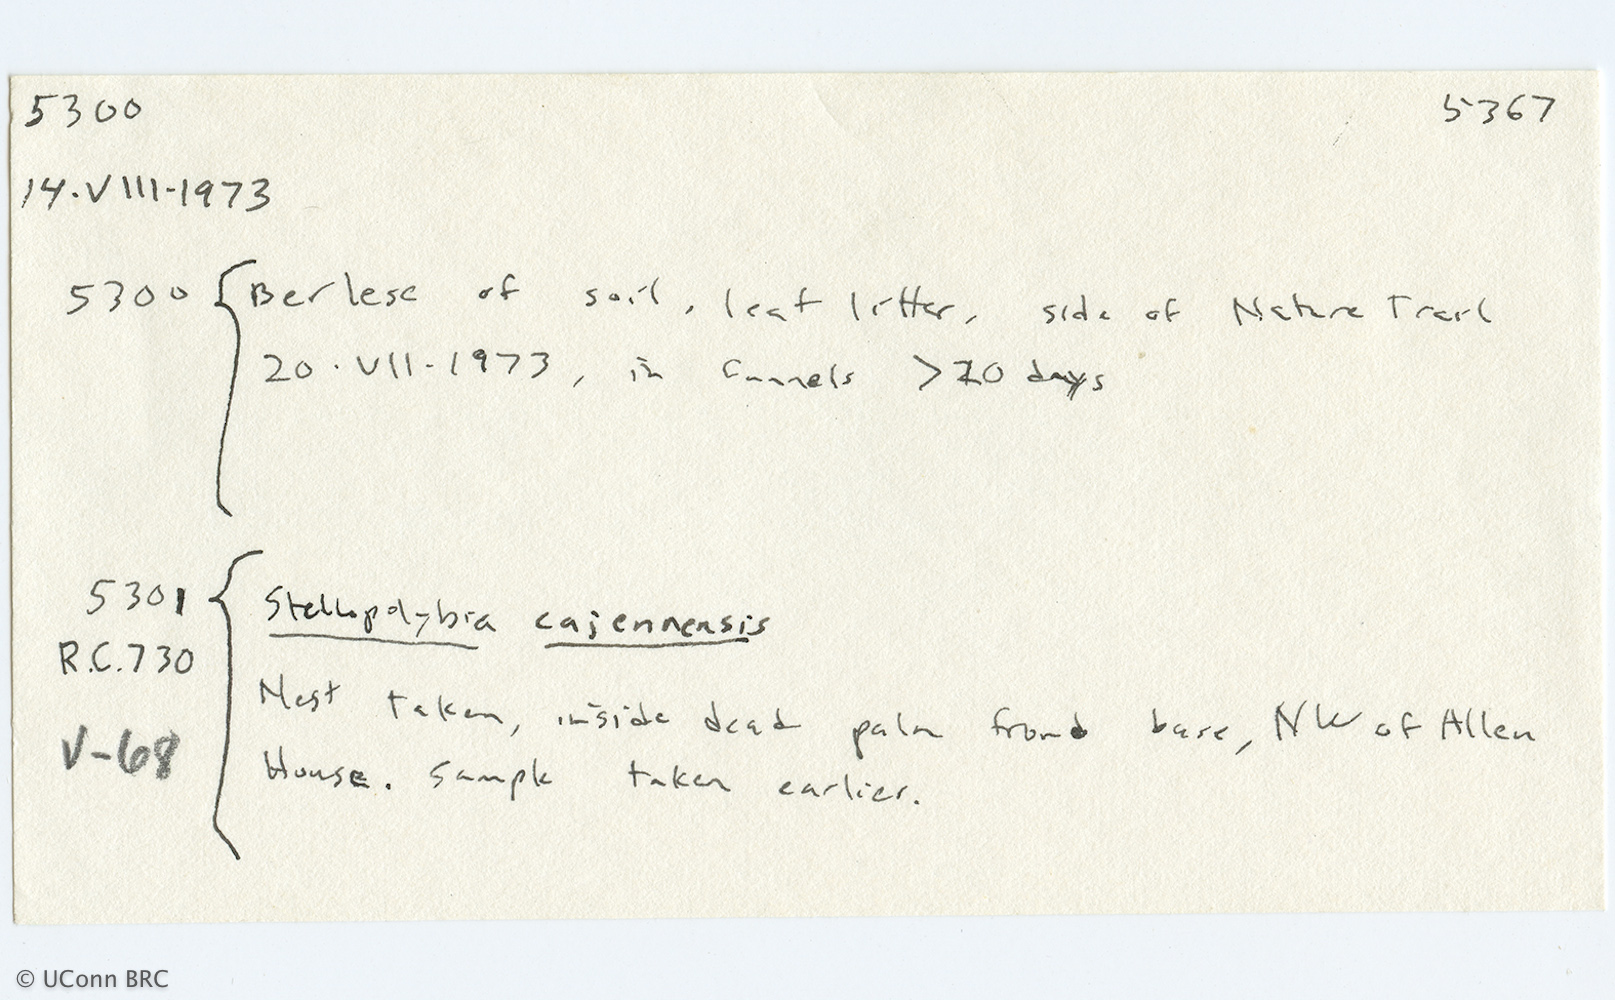 5300 5367
14.VIII-1973
5300 { Berlese of soil, leaf litter, side of Nature Trail
20.VII-1973, in funnels >20 days
5301 { Stellopolybia cajennensis
R.C.730
Nest taken, inside dead palm frond base, NW of Allen
V-68
House. Sample taken earlier.
© UConn BRC